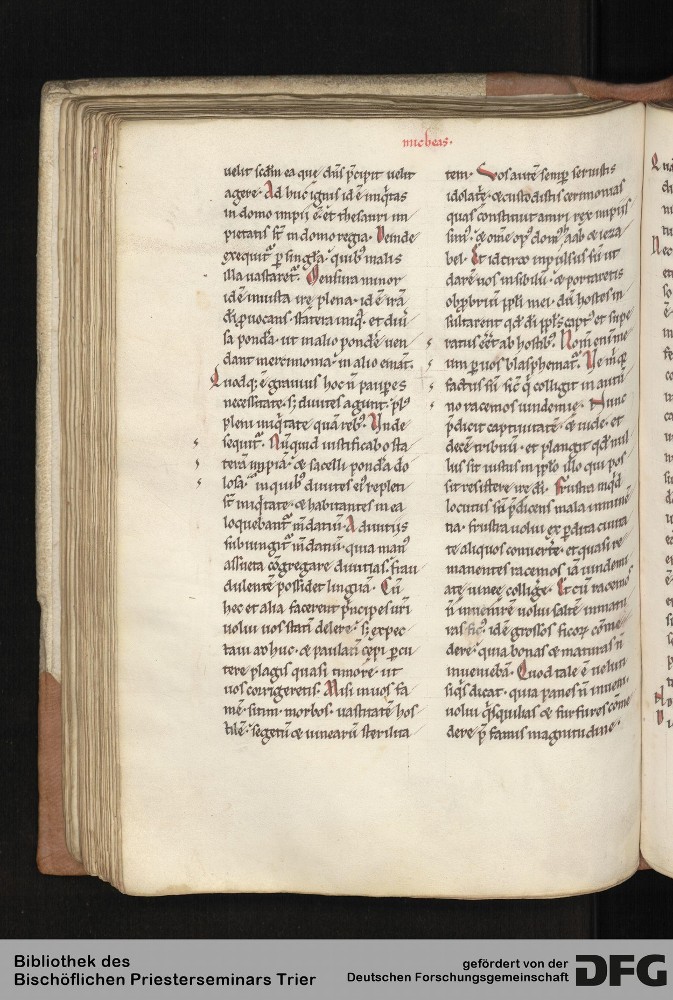 micheas.
uelit scd̄m ea que dn̄s p̄cipit uelit
agere. Ad huc ignis id ē iniq̄tas
in domo impii ē. et thesauri im
pietatis st̄ in domo regia. Deinde
exequit᷑ ꝑ singl̄a. quib᷒ malis
illa uastaret᷑. Mensura minor
idē iniusta irę plena. id ē irā
di ꝓuocans. statera iniq̄. et diu
sa pond̄a. ut in alio pond̄e uen
dant mercimonia. in alio emāt.
Quodq; ē grauius hoc n̄ paupes
necessitate. s; diuites agunt. pl᷒
pleni iniq̄tate quā reb᷒. Unde
sequit᷑. Nūquid iustificabo sta
terā impiā. & sacelli pond̄a do
losa. in quib᷒ diuites ei᷒ repleti
st̄ iniq̄tate. & habitantes in ea
loquebant᷑ m̄datiū. A diuitijs
subiungit᷑ m̄datiū. quia man᷒
assueta cōgregare diuitias. frau
dulentē possidet linguā. Cū
hec et alia facerent p̄ncipes ur̄i
uolui uos stati delere. s; expec
taui adhuc. & paulati cepi ꝑcu
tere plagis quasi timore. ut
uos corrigeretis. Misi in uos fa
mē. sitim. morbos. uastitatē hos
tilē. segetū & uinearū sterilita
tem. Vos autē semꝑ seruistis
idolat̄e. & custodistis cerimonias
quas constituit amri rex impiis
sim᷒. & om̄e op᷒ dom᷒ aab & ieza
bel. Et idcirco inpulsus sū ut
darē uos in sibilū. & portaretis
obꝓbriū ppl̄i mei. dū hostes in
sultarent qd̄ di ppl̄s capt᷒ et supe
ratus eēt ab hostib᷒. Nom̄ eni me
um ꝑ uos blasphemat᷑. Ve m̄ qr̄
factus sū sic̄ q̄ colligit in autū
no racemos uindemie. Nunc
p̄dicit captiuitatē. & iude. et
decē tribuū. et plangit qd̄ nul
lus sit iustus in ppl̄o illo qui pos
sit resistere ire di. Frustra inq̄d
locutus sū p̄dicens mala inmine
tia. frustra uolui ex ꝑdita ciuita
te aliquos conuert̄e. et quasi re
manentes racemos iā uindemi
atę uinee colliḡe. Et cū racemos
n̄ inuenirē uolui saltē inmatu
ras fic᷒. id ē grossos ficoꝝ cōme
dere. quia bonas & maturas n̄
inueniebā. Quod tale ē uelut
siq̄s dicat. quia panes n̄ inueni.
uolui q̄squilias & furfures cōme
dere p̄ famis magnitudine.
Bibliothek des
Bischöflichen Priesterseminars Trier
gefördert von der
Deutschen Forschungsgemeinschaft
DFG